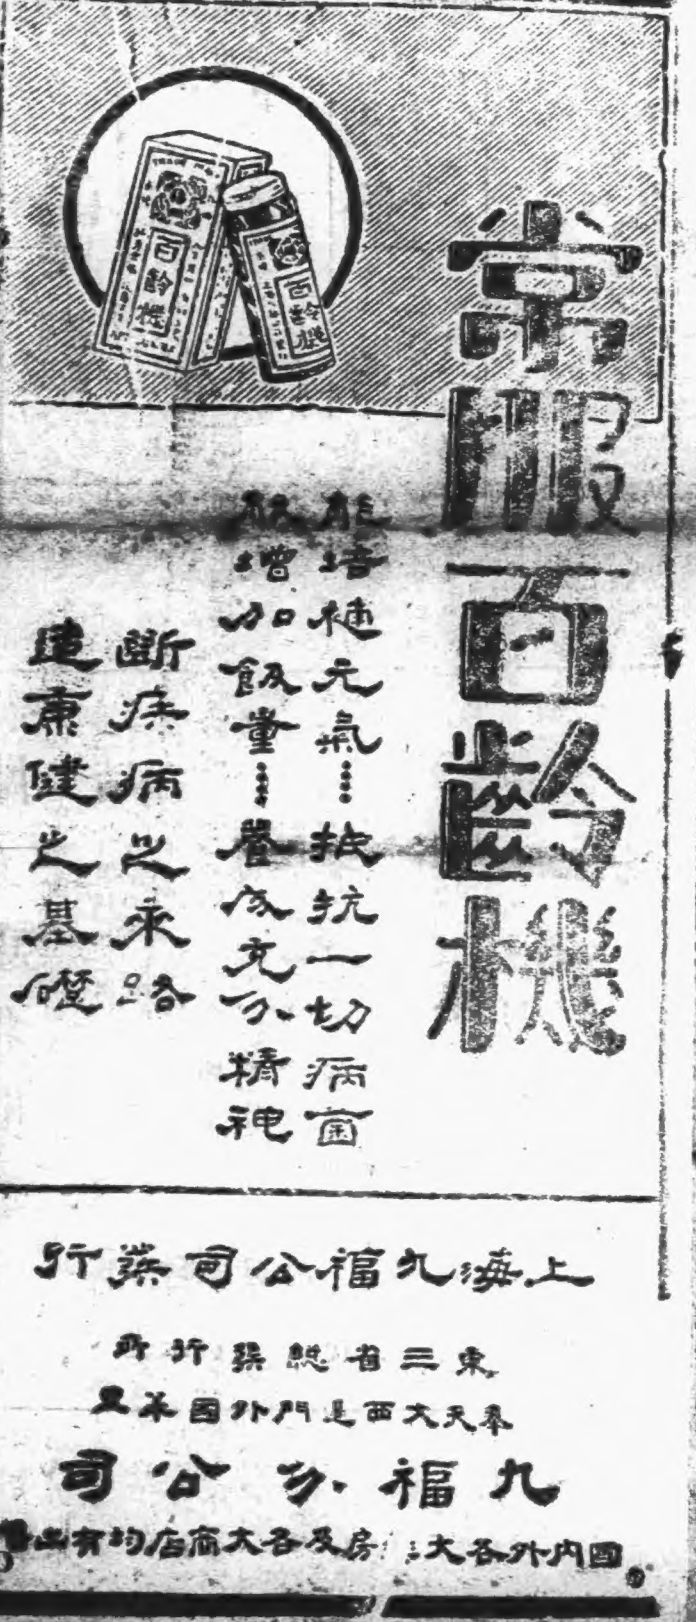 常服百齡機
百齡機
百齡機
能培植元氣……抵抗一切病菌
能增加飯量……養成充分精神
斷疾病之來路
造康健之基礎
上海九福公司發行
東三省總發行所
奉天大西邊門外國茶里
九福分公司
國內外各大 房及各大商店均有出售